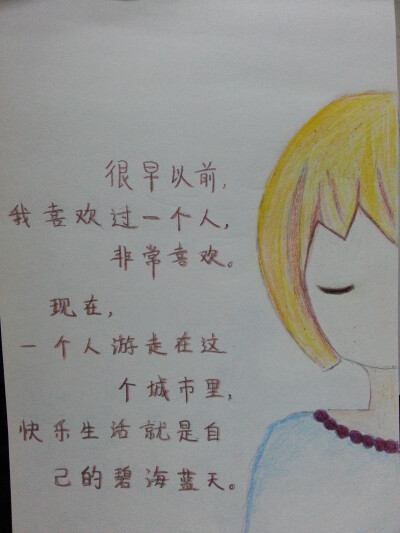 很早以前，
我喜欢过一个人，
非常喜欢。
现在，
一个人游走在这
个城市里，
快乐生活就是自
己的碧海蓝天。